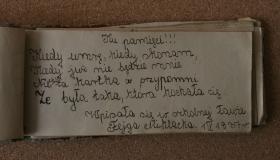 Ku pamięci!!!
Kiedy umrę, kiedy skonam
Kiedy już nie będzie mnie
Niech ta kartka w przypomni
Że była taka, która kochała cię
Wpisała się w szkolnej ławie